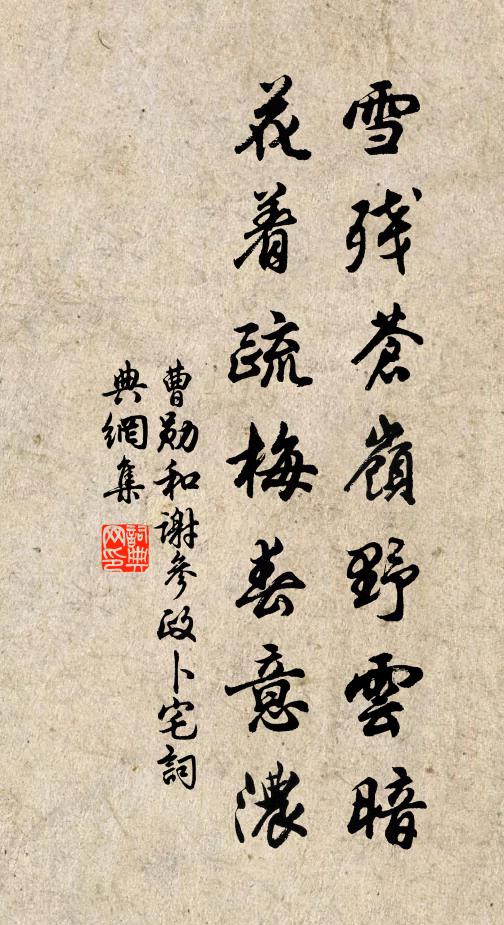 雪残蒼嶺野雲暗
花着疏梅春意濃
曹勛和謝参政卜宅詞
典網集
詞典
网印